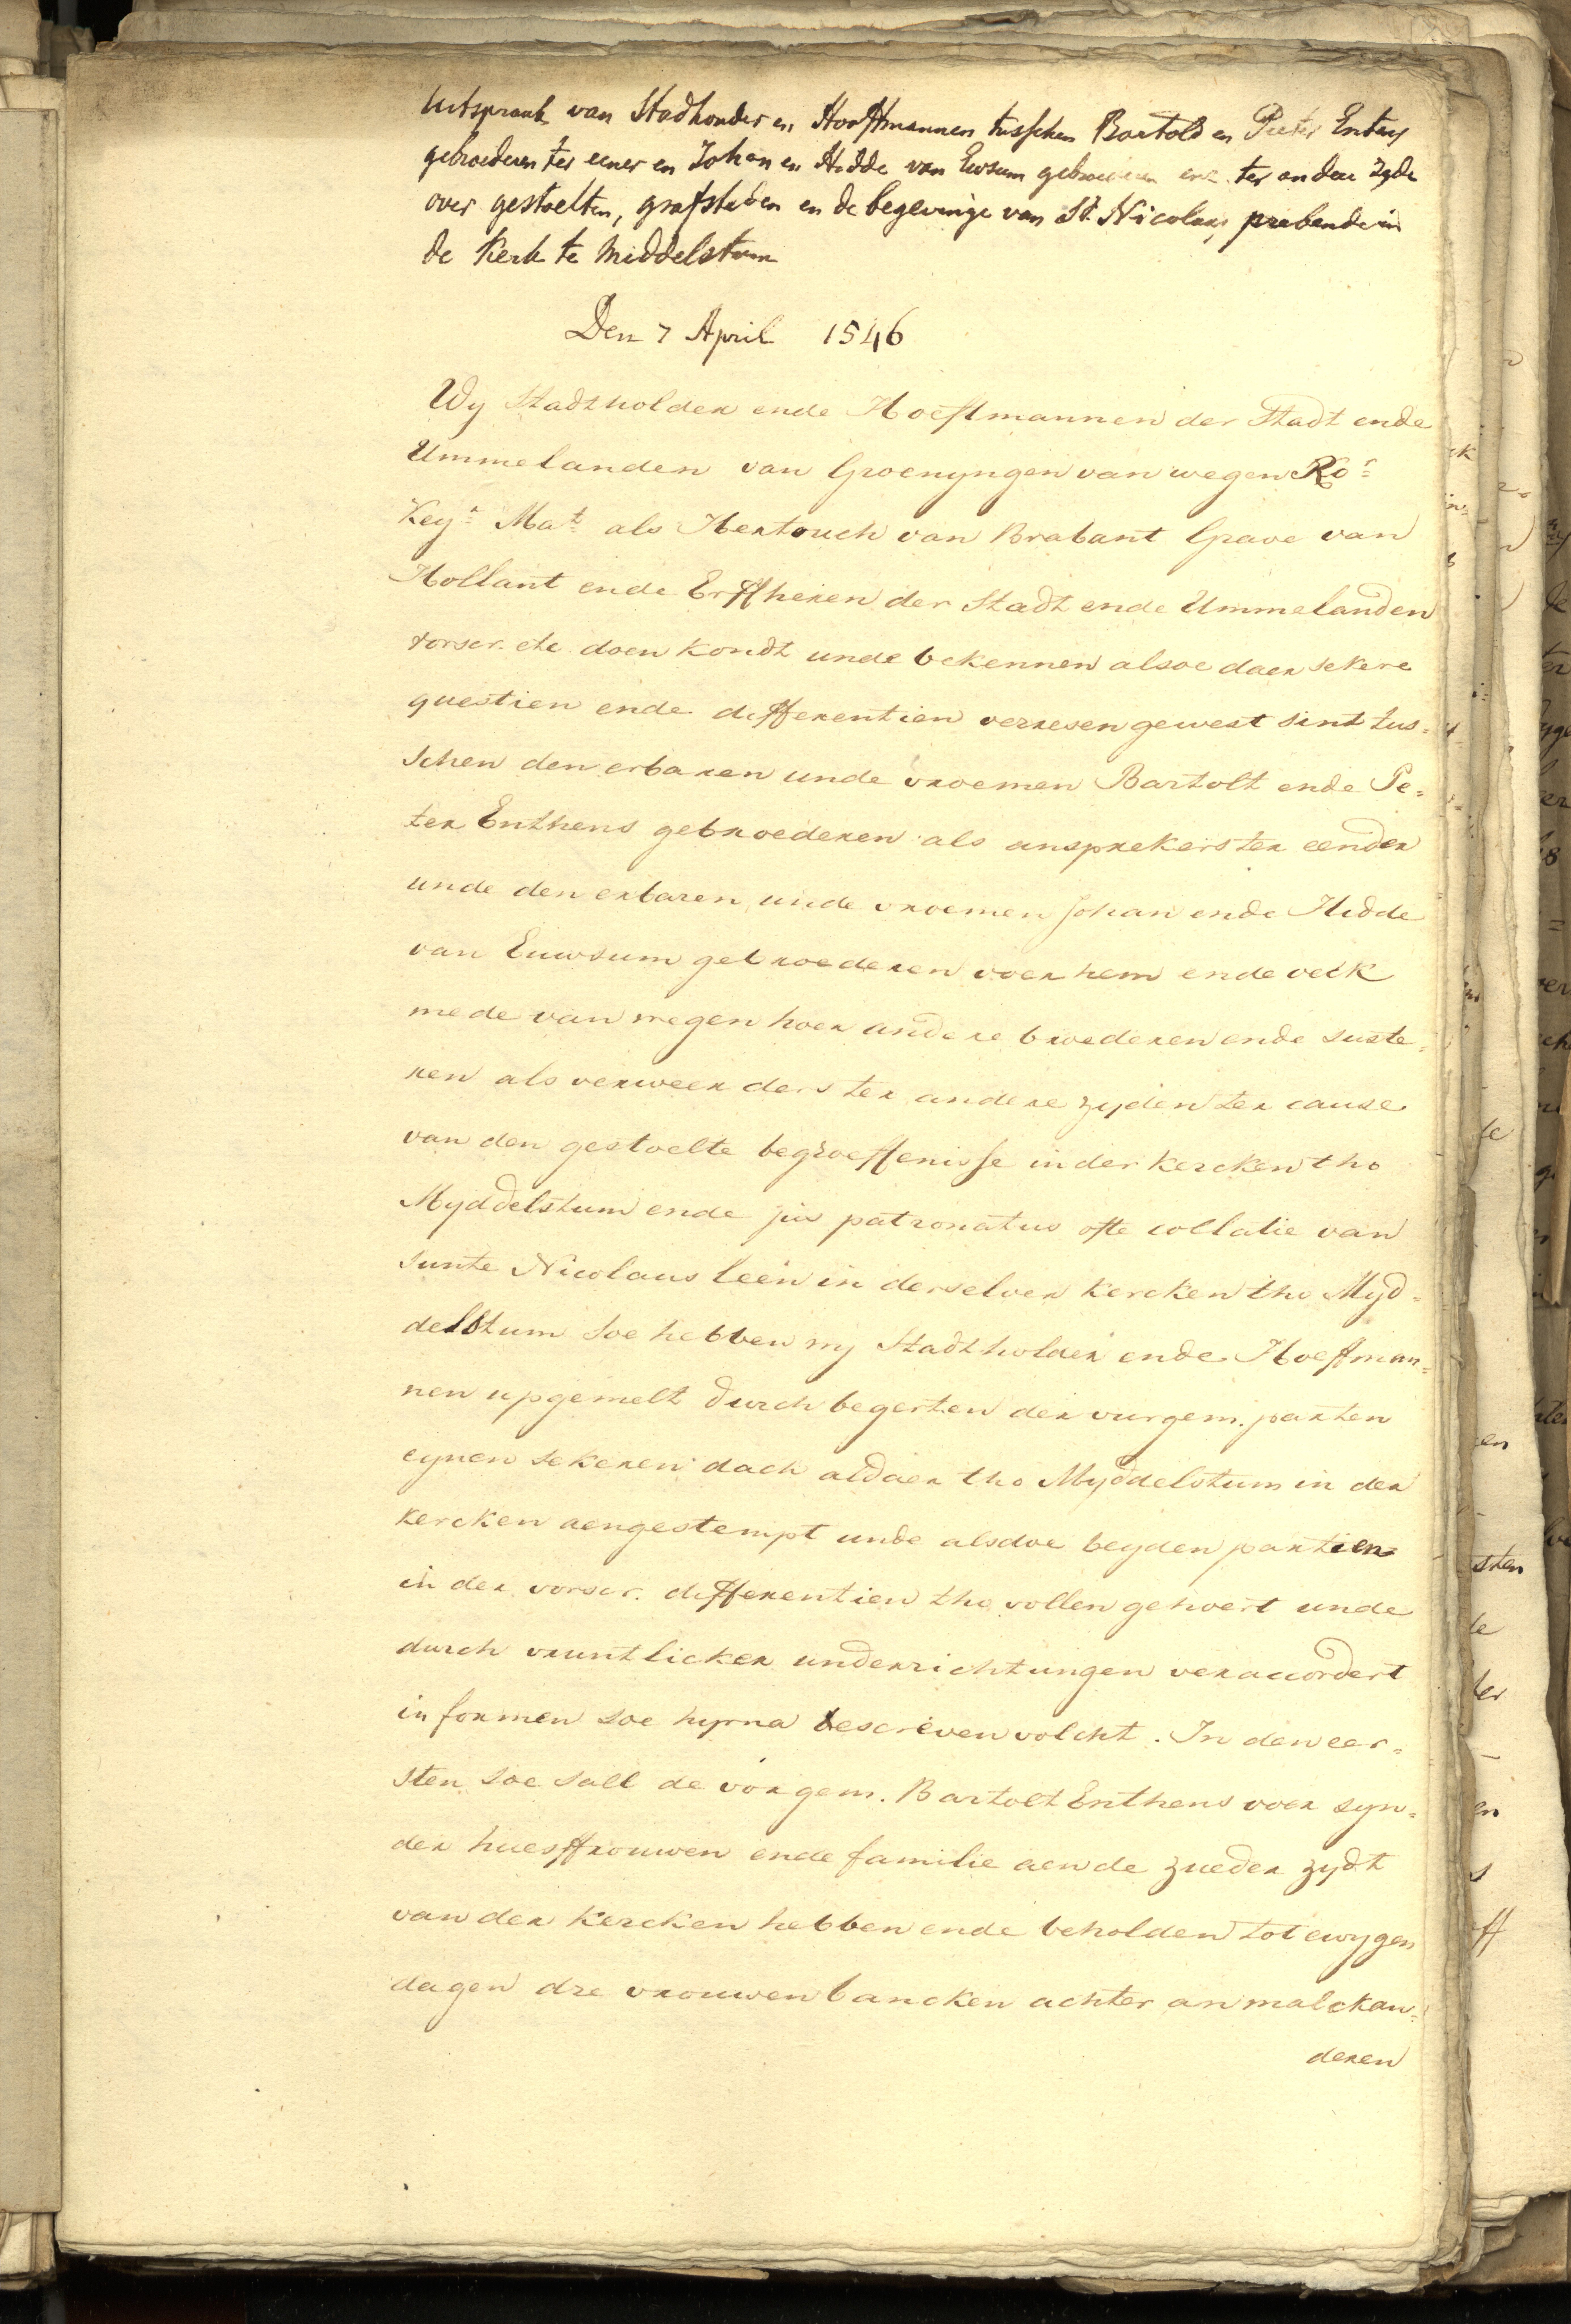 Uitspraak van Stadhouder en Hooftmannen tusschen Bartold en Pieter Entens
gebroederen ter eener en Johan en Hidde van Ewsum gebroederen enz. ter andere zyde
over gestoelten, grafsteden en de begevinge van St. Nicolaas prebende in
de Kerk te Middelstum
Den 7 April 1546
Wy Stadtholder ende Hoeftmannen der Stadt ende
Ummelanden van Groenyngen van wegen Ro.r
Key.r Ma.t als Hertouch van Brabant Grave van
Hollant ende Erffheren der Stadt ende Ummelanden
vorscr. etc doen kondt unde bekennen alsoe daer sekere
questien ende differentien verresen gewest sint tus=
schen den erbaren unde vroemen Bartolt ende Pe=
ter Enthens gebroederen als ansprekers ter eender
unde den erbaren unde vroemen Johan ende Hidde
van Euwsum gebroederen voer hem ende oeck
mede van wegen hoer andere broederen ende suste=
ren als verweerders ter andere zyden ter cause
van den gestoelte begroeffenisse in der kercken tho
Myddelstum ende jus patronatus ofte collatie van
sunte Nicolaus leen in derselver kercken tho Myd=
delstum soe hebben wy Stadtholder ende Hoeftman=
nen upgemelt durch begerten der vurgem. parten
eynen sekeren dach aldaer tho Myddelstum in der
kercken aengestempt unde alsdoe beyden partien
in der vorscr. differentien tho vollen gehoert unde
durch vruntlicker underrichtungen veraccordert
in formen soe hyrna bescreven volcht. In den eer=
sten soe sall de vorgem. Bartolt Enthens voer syn=
der huesffrouwen ende familie aen de zueder zydt
van der kercken hebben ende beholden tot ewygen
dagen dre vrouwen bancken achter an malckan=
deren